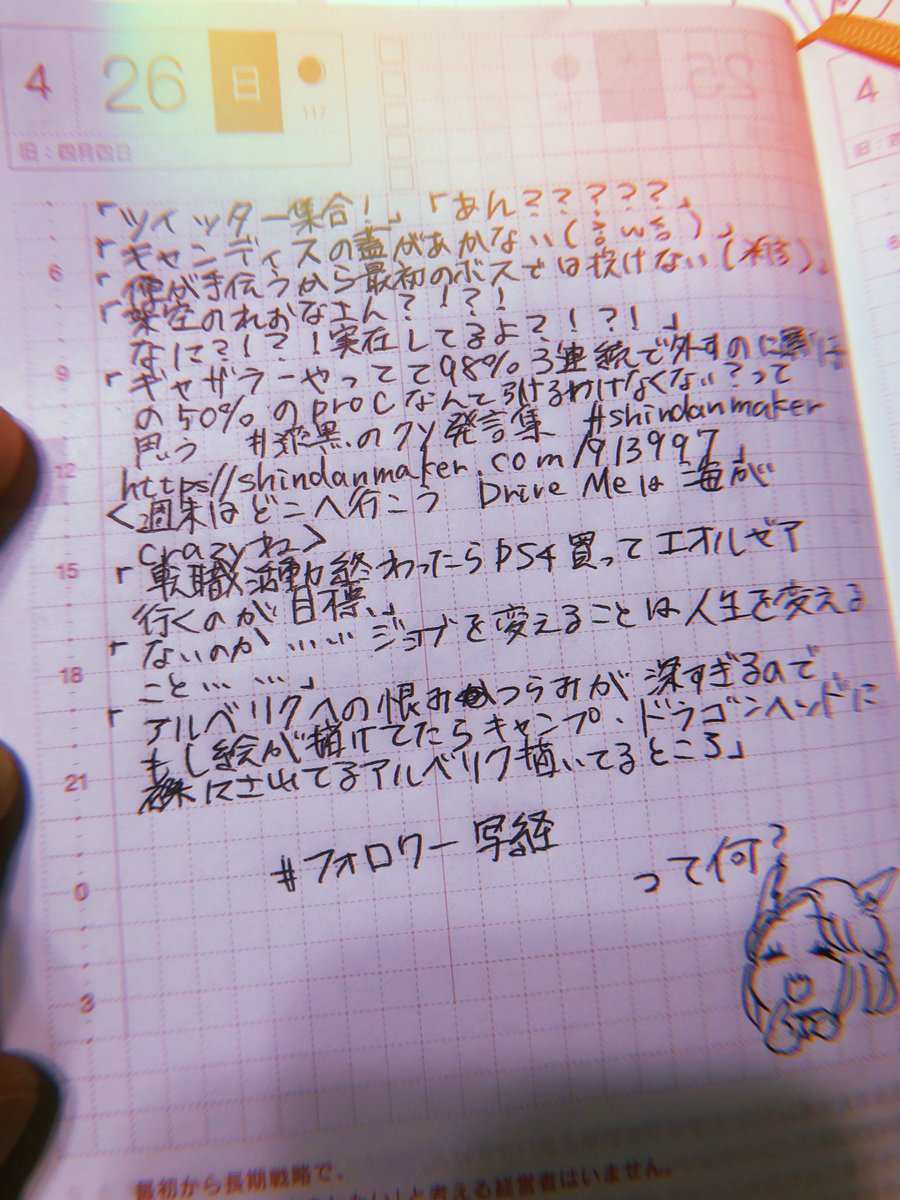 4 26 日
117
旧：四月四日
「ツイッター集合！」「あん？？？？？」
「キャンディスの蓋があかない(´；ω；`)」
「俺が手伝うから最初のボスでは抜けない(迷彦)」
「架空のれおなさん？！？！
なに？！？！実在してるよ？！？！」
「ギャザラーやってて98％3連続で外すのに
の50％のprocなんて引けるわけなくない？って
思う #漆黒のクソ発言集 #shindanmaker
https://shindanmaker.com/913997」
<週末はどこへ行こう Drive Meは海が
crazyね>
「転職活動終わったらPS4買ってエオルゼア
行くのが目標」
「ないのか……ジョブを変えることは人生を変える
こと……」
「アルベリクへの恨みつらみが深すぎるので
もし絵が描けてたらキャンプ・ドラゴンヘッドに
裸にされてるアルベリク描いてるところ」
#フォロワー写経
って何？
6
9
12
15
18
21
0
3
最初から長期戦略で、
と考える経営者はいません。